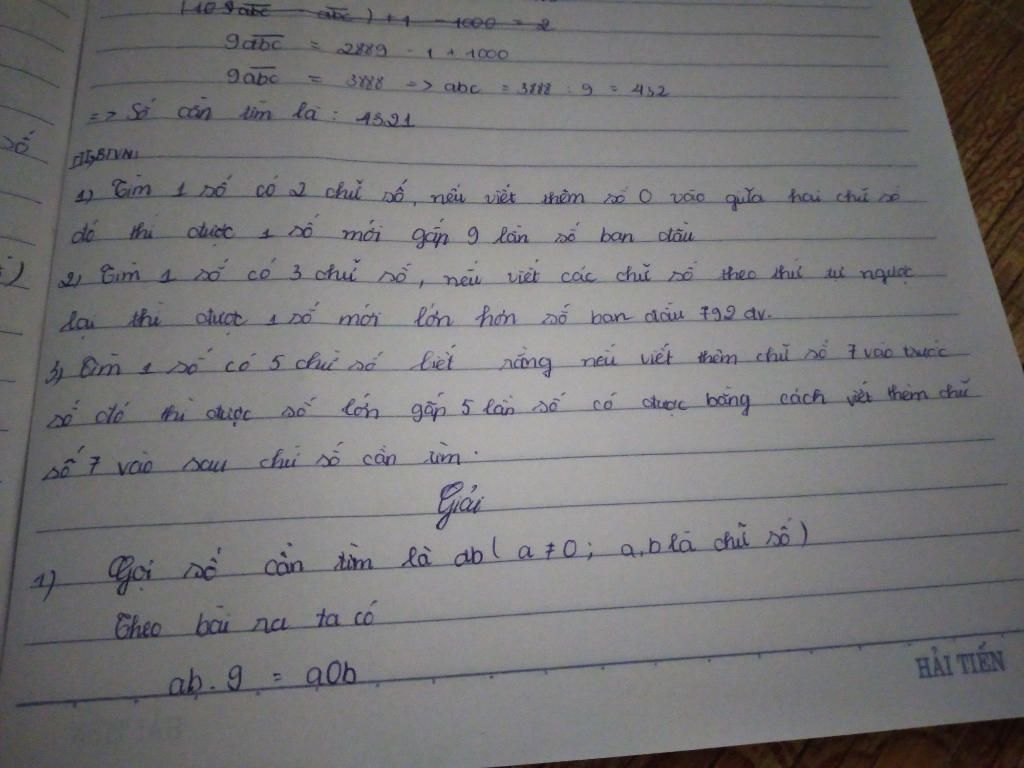 (10 9abc - abc) + 1 - 1000 = 2
9abc = 2889 - 1 + 1000
9abc = 3888 => abc = 3888 : 9 = 432
=> Số cần tìm là : 4321
số
II, BTVN:
1) Tìm 1 số có 2 chữ số, nếu viết thêm số 0 vào giữa hai chữ số
đó thì được 1 số mới gấp 9 lần số ban đầu
2) Tìm 1 số có 3 chữ số, nếu viết các chữ số theo thứ tự ngược
lại thì được 1 số mới lớn hơn số ban đầu 792 đv.
3) Tìm 1 số có 5 chữ số biết rằng nếu viết thêm chữ số 7 vào trước
số đó thì được số lớn gấp 5 lần số có được bằng cách viết thêm chữ
số 7 vào sau chữ số cần tìm.
Giải
1) Gọi số cần tìm là ab ( a ≠ 0 ; a, b là chữ số )
Theo bài ra ta có
ab . 9 = a0b
HẢI TIẾN